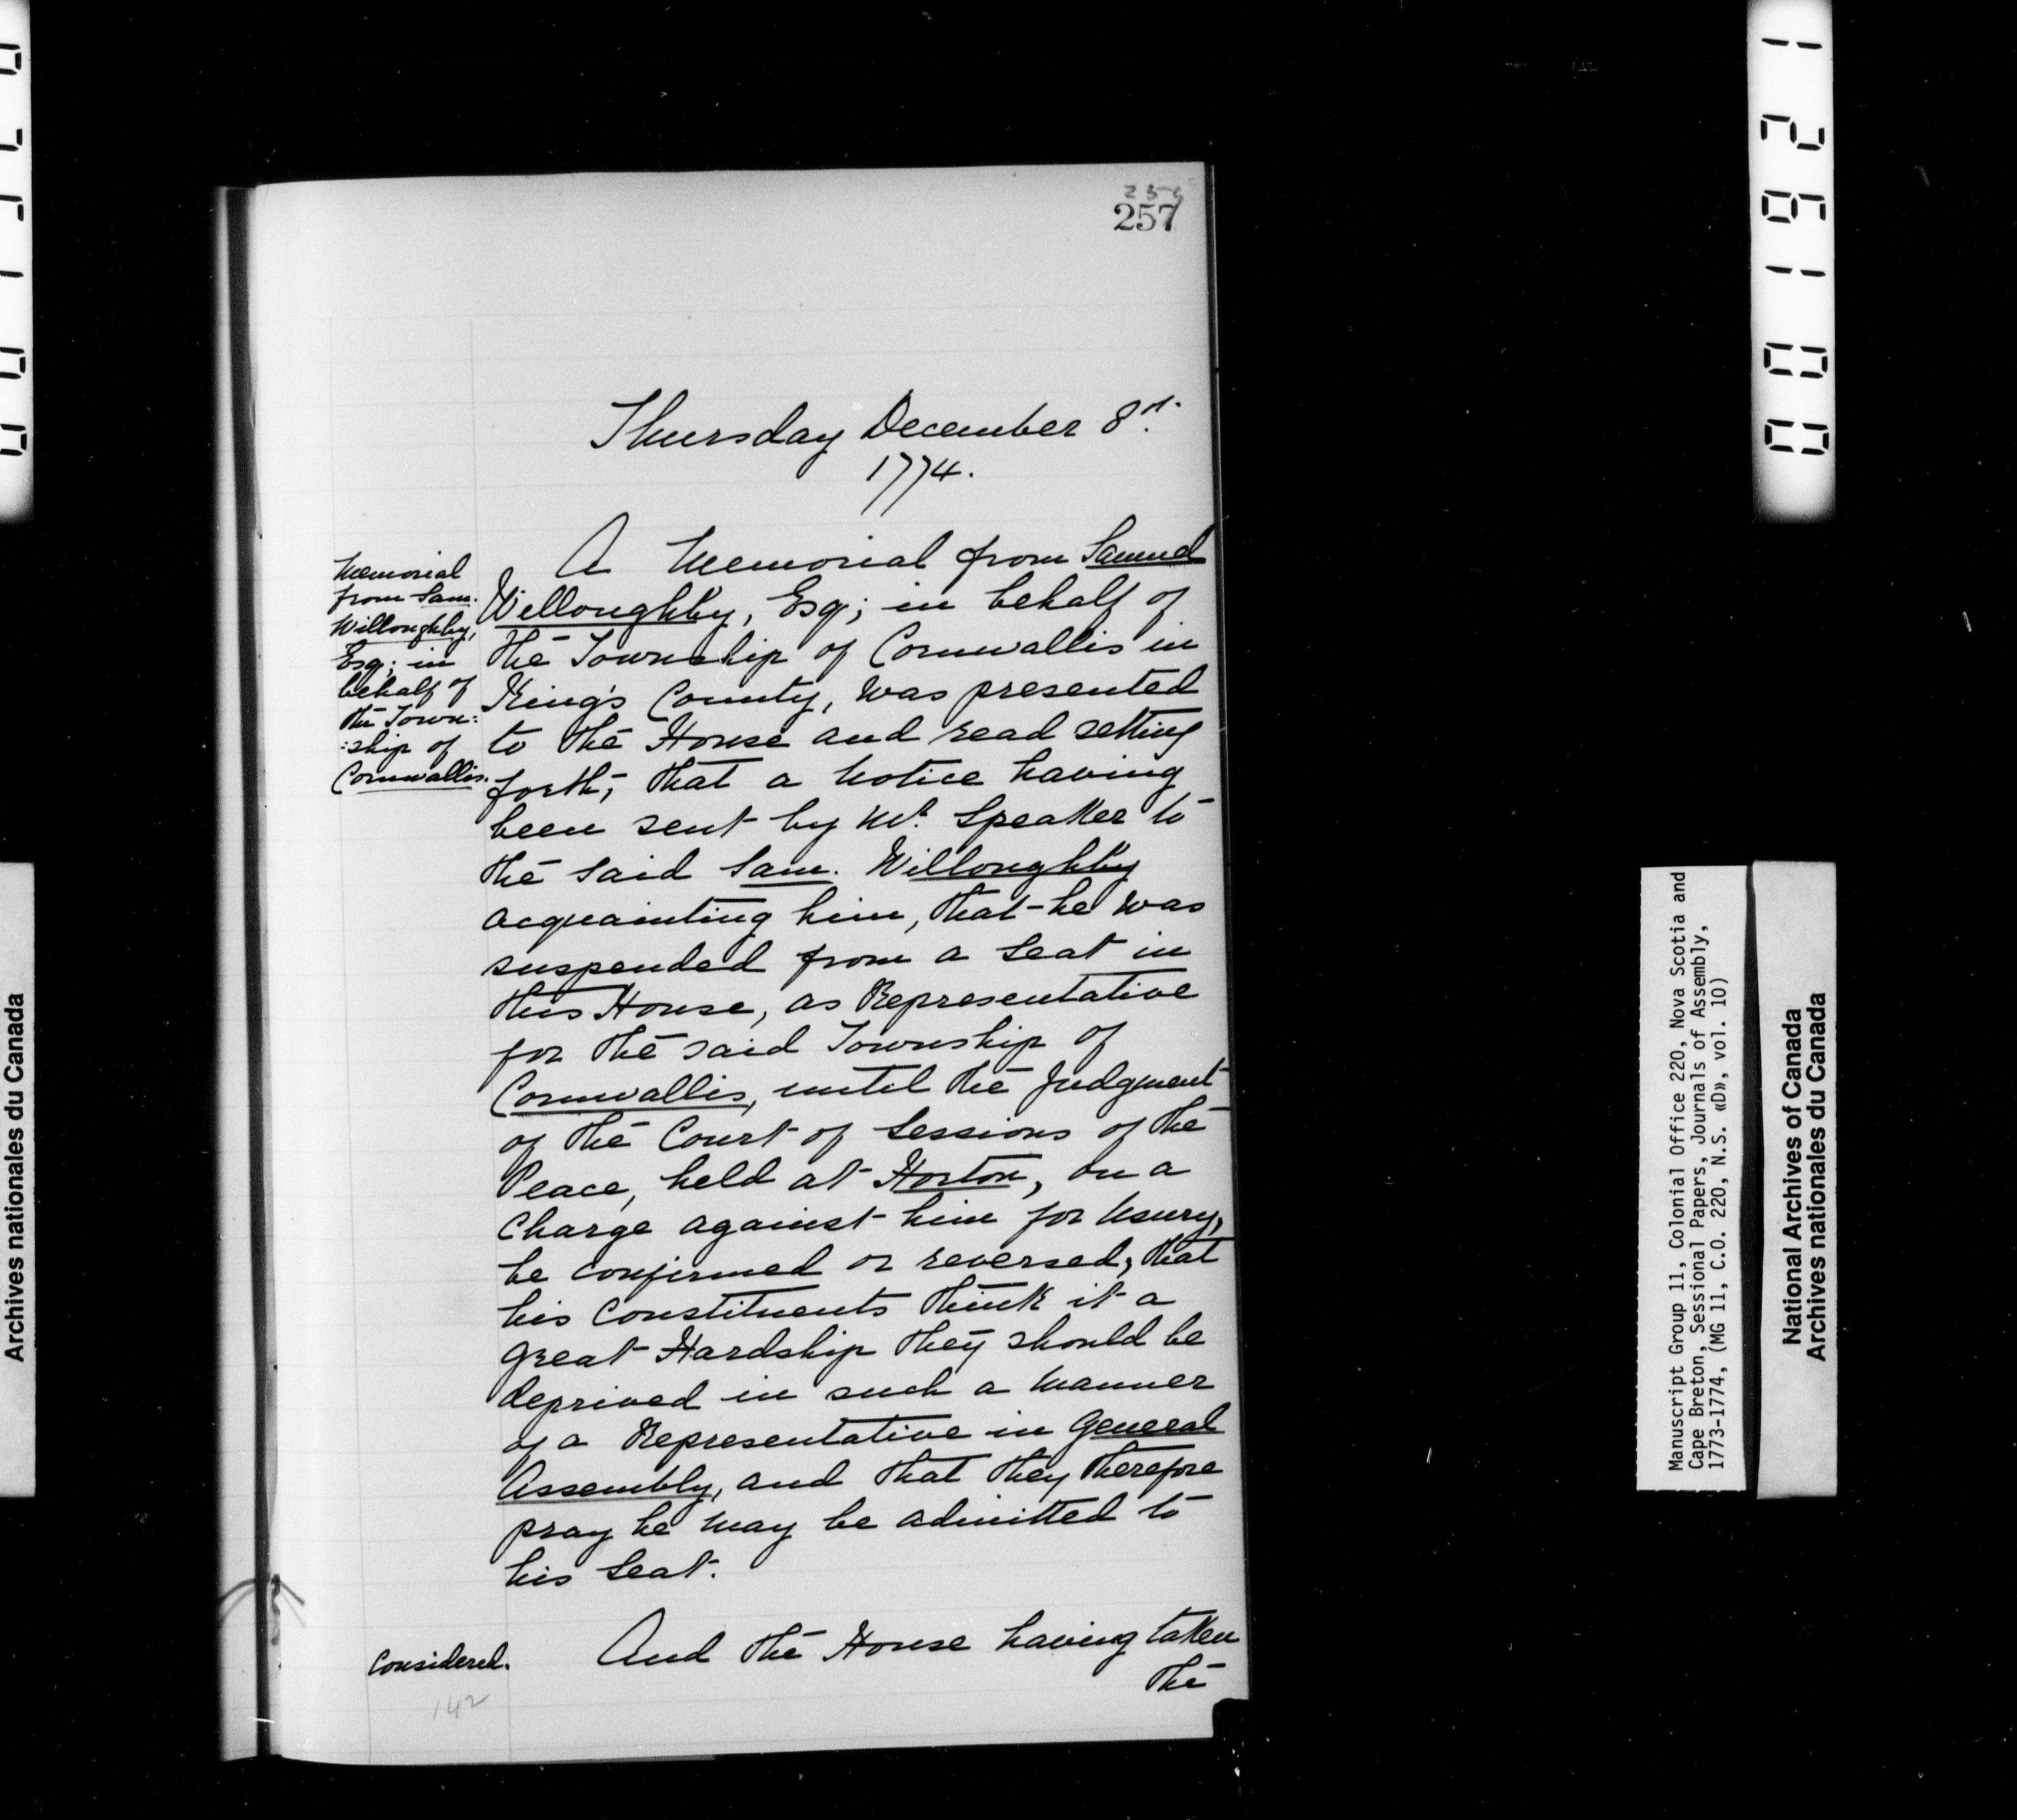 257
Thursday December 8th.
1774.
Memorial
from Sam.
Willoughby,
Esq; in
behalf of
the Town:
:ship of
Cornwallis.
A Memorial from Samuel
Willoughby, Esq; in behalf of
the Township of Cornwallis in
King's County, was presented
to the House and read setting
forth, that a Notice having
been sent by Mr. Speaker to
the said Sam. Willoughby
acquainting him, that he was
suspended from a Seat in
this House, as Representative
for the said Township of
Cornwallis, until the Judgment
of the Court of Sessions of the
Peace, held at Horton, on a
Charge against him for Usury,
be confirmed or reversed, that
his Constituents think it a
great Hardship they should be
deprived in such a Manner
of a Representative in General
Assembly, and that they therefore
pray he may be admitted to
his Seat.
Considered.
And the House having taken
the
142
Manuscript Group 11, Colonial Office 220, Nova Scotia and
Cape Breton, Sessional Papers, Journals of Assembly,
1773-1774, (MG 11, C.O. 220, N.S. «D», vol. 10)
National Archives of Canada
Archives nationales du Canada
Archives nationales du Canada